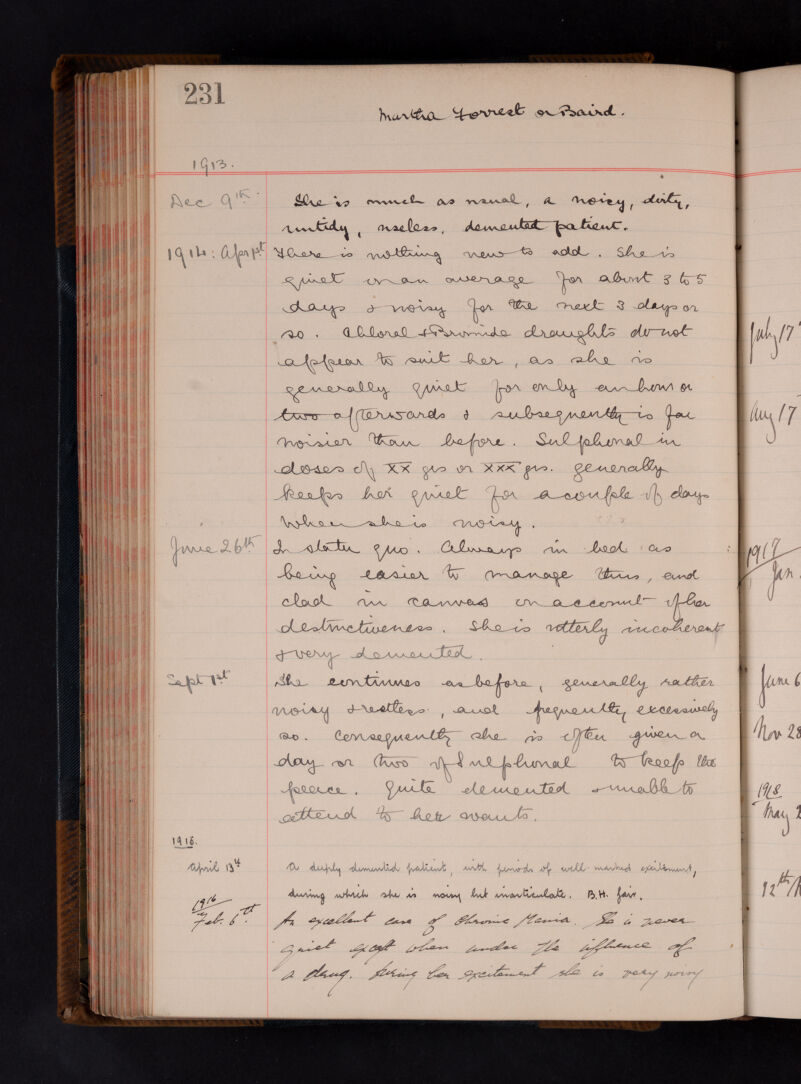 231
Martha Forrest or Baird.
1913.
Dec 9th. She is much as usual, a noisy, dirty,
untidy, useless, demented patient.
1914: Apr 1st There is nothing new to add. She is
quiet on an average for about 3 to 5
days & noisy for the next 3 days or
so. Chloral & Bromide draughts do not
appear to suit her, as she is
generally quiet for only an hour or
two afterwards & subsequently is far
noisier than before. Sulphonal in
doses of XX grs or XXX grs. generally
keeps her quiet for a couple of days
when she is noisy.
June 26th In statu quo. Always in bed as
being easier to manage thus, and
clad in canvas on account of her
destructiveness. She is utterly incoherent
& very demented.
Sept 1st She continues as before, generally rather
noisy & restless, and frequently excessively
so. Consequently she is often given a
day or two of Sulphonal to keep the
peace. Quite demented & unable to
attend to her wants.
1915.
April 13th A deeply demented patient, with periods of well-marked excitement,
during which she is noisy but inarticulate. B.H. fair.
1916
Feb. 6th. An excellent case of Chronic Mania. She is never
quiet except when under the influence of
a drug. During her excitement she is very noisy
July 17
Aug 17
1917
Jan.
June 6
Nov 28
1918
May 2
12th